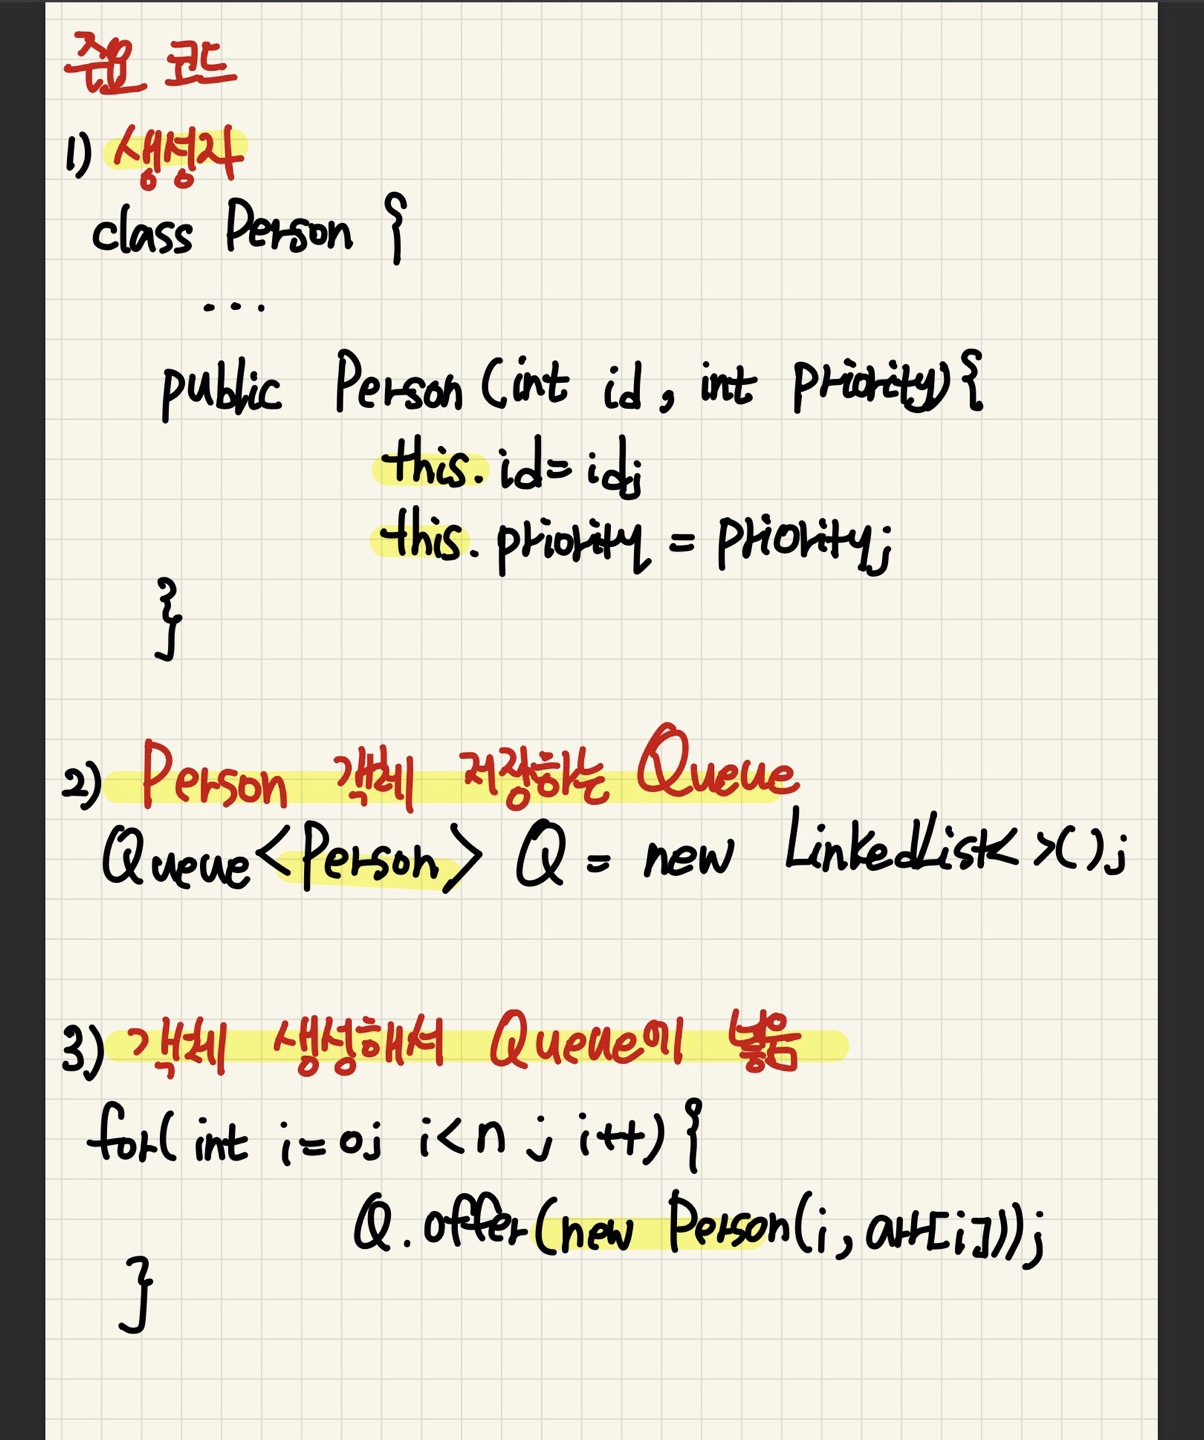 주요 코드
1) 생성자
class Person {
...
public Person (int id, int priority){
this.id= id;
this.priority = priority;
}
2) Person 객체 저장하는 Queue
Queue<Person> Q = new LinkedList< >();
3) 객체 생성해서 Queue에 넣음
for( int i=0; i<n ; i++) {
Q.offer(new Person(i, arr[i]));
}